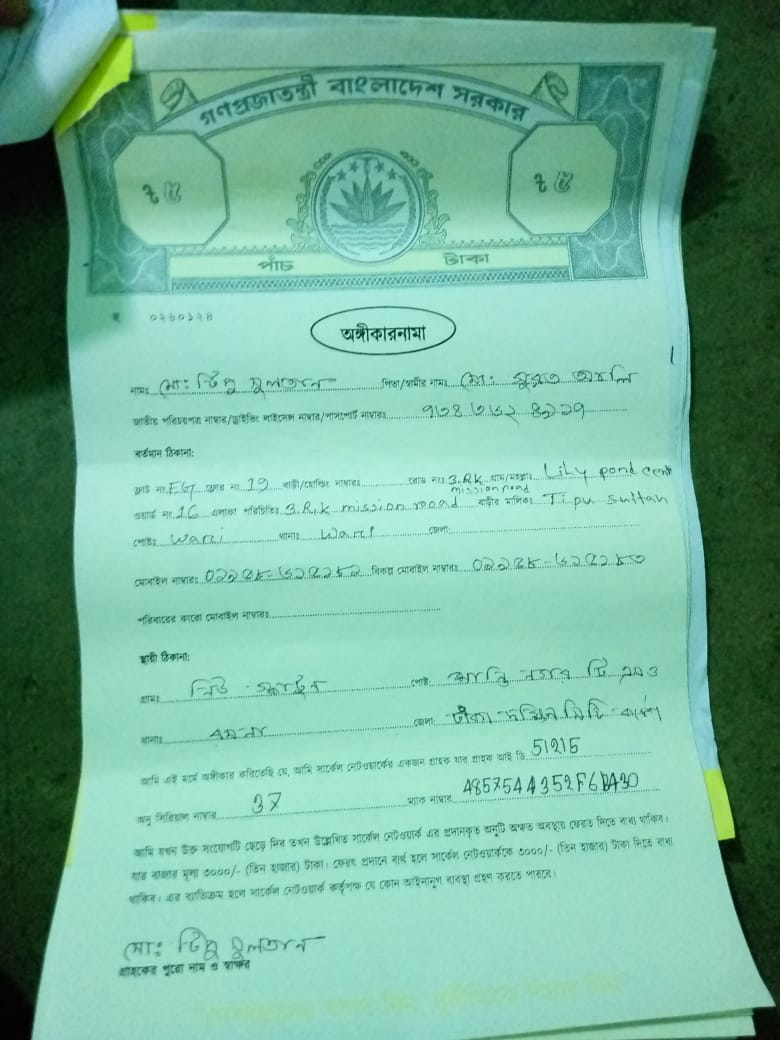 গণপ্রজাতন্ত্রী বাংলাদেশ সরকার
৳ ৫ ৳ ৫
পাঁচ টাকা
০২৬০১২৪
অঙ্গীকারনামা
নামঃ মোঃ টিপু সুলতান পিতা/স্বামীর নামঃ মোঃ সুরত আলি
জাতীয় পরিচয়পত্র নাম্বার/ড্রাইভিং লাইসেন্স নাম্বার/পাসপোর্ট নাম্বারঃ ৭৩৪ ৩৬২ ৪১১৭
বর্তমান ঠিকানা:
ফ্ল্যাট নং ফ্লোর নং 19 বাড়ী/হোল্ডিং নাম্বারঃ রোড নংঃ 3.R.K mission road গ্রাম/মহল্লাঃ Lily pond cent
ওয়ার্ড নং 16 এলাকা পরিচিতিঃ 3.R.k mission road বাড়ীর মালিকঃ Tipu sultan
পোষ্টঃ Wari থানাঃ Wari জেলা:
মোবাইল নাম্বারঃ বিকল্প মোবাইল নাম্বারঃ
পরিবারের কারো মোবাইল নাম্বারঃ
স্থায়ী ঠিকানা:
গ্রামঃ নিউ পোষ্টঃ নগর টি এস ও
থানাঃ রমনা জেলা: ঢাকা দক্ষিন সিটি
আমি এই মর্মে অঙ্গীকার করিতেছি যে, আমি সার্কেল নেটওয়ার্কের একজন গ্রাহক যার গ্রাহক আই ডি 51215
অনু সিরিয়াল নাম্বার 37 ম্যাক নাম্বার 4857544352F6DA30
আমি যখন উক্ত সংযোগটি ছেড়ে দিব তখন উল্লেখিত সার্কেল নেটওয়ার্ক এর প্রদানকৃত অনুটি অক্ষত অবস্থায় ফেরত দিতে বাধ্য থাকিব।
যার বাজার মূল্য ৩০০০/- (তিন হাজার) টাকা। ফেরৎ প্রদানে ব্যর্থ হলে সার্কেল নেটওয়ার্ককে ৩০০০/- (তিন হাজার) টাকা দিতে বাধ্য
থাকিব। এর ব্যতিক্রম হলে সার্কেল নেটওয়ার্ক কর্তৃপক্ষ যে কোন আইনানুগ ব্যবস্থা গ্রহণ করতে পারবে।
মোঃ টিপু সুলতান
গ্রাহকের পুরো নাম ও স্বাক্ষর